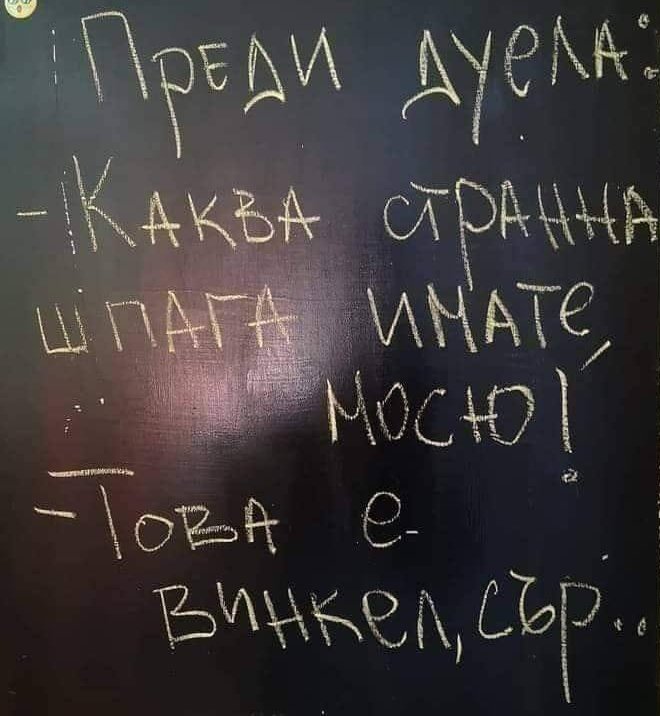 Преди дуела:
-Каква странна
шпага имате,
мосю!
-Това е
винкел, сър...